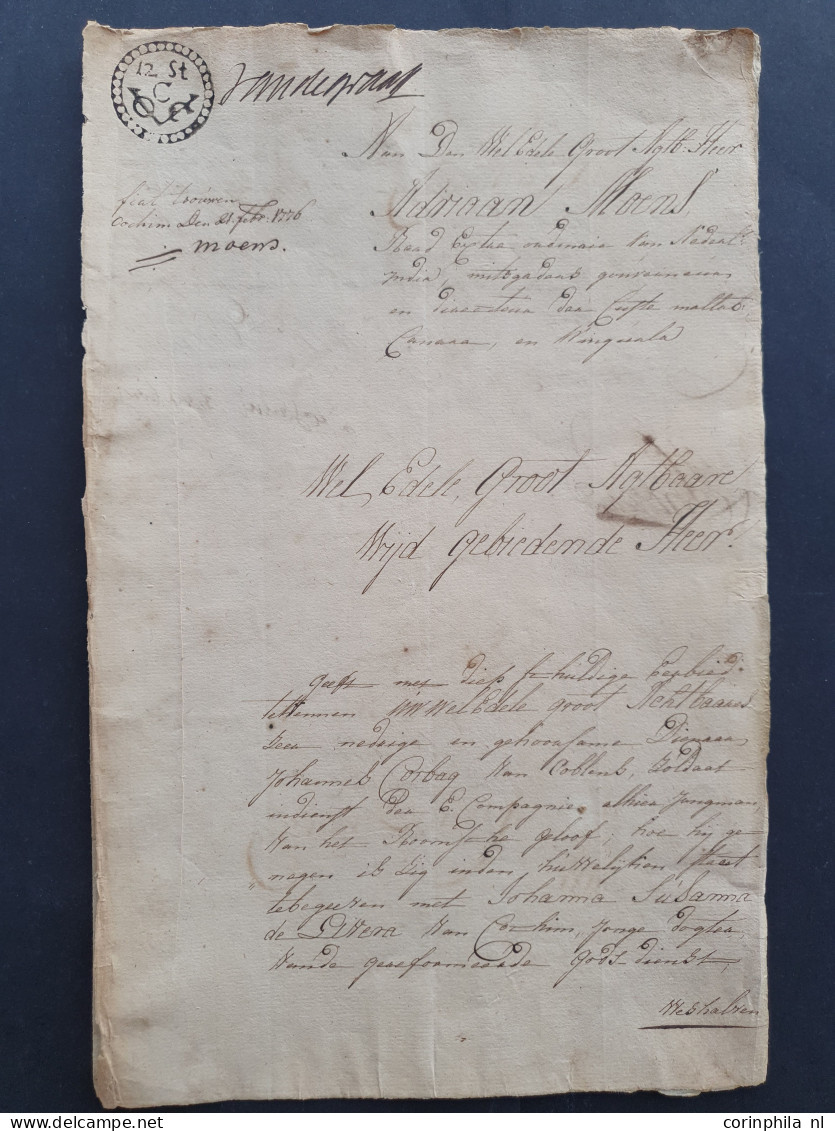 12 St
C
Vandegraaff
Aan Den WelEdele Groot Agtb: Heer
Adriaan Moens,
Raad Extra ordinair Van Nederl:s
India, mitsgaders gouverneur
en directeur der Custe mallab:r
Canara, en Wingurla
fiat trouwen
Cochim Den 21 febr: 1776
Moens.
Wel Edele, Groot Agtbaare
Wijd gebiedende Heer.
Geeft met diep schuldige Eerbied
te kennen UWWelEdele groot Achtbaares
Zeer nedrige en gehoorsame Dienaar
Johannes Corbag Van Coblens, Zoldaat
indienst der E. Compagnie alhier Jongman,
Van het Roomsche geloof; hoe hij ge=
negen is Zig inden huwelijken Staat
te begeeven met Johanna Susanna
de Livera Van Cochim, Jonge dogter,
Van de gereformeerde Gods-dienst,
Weshalven
corinphila nl